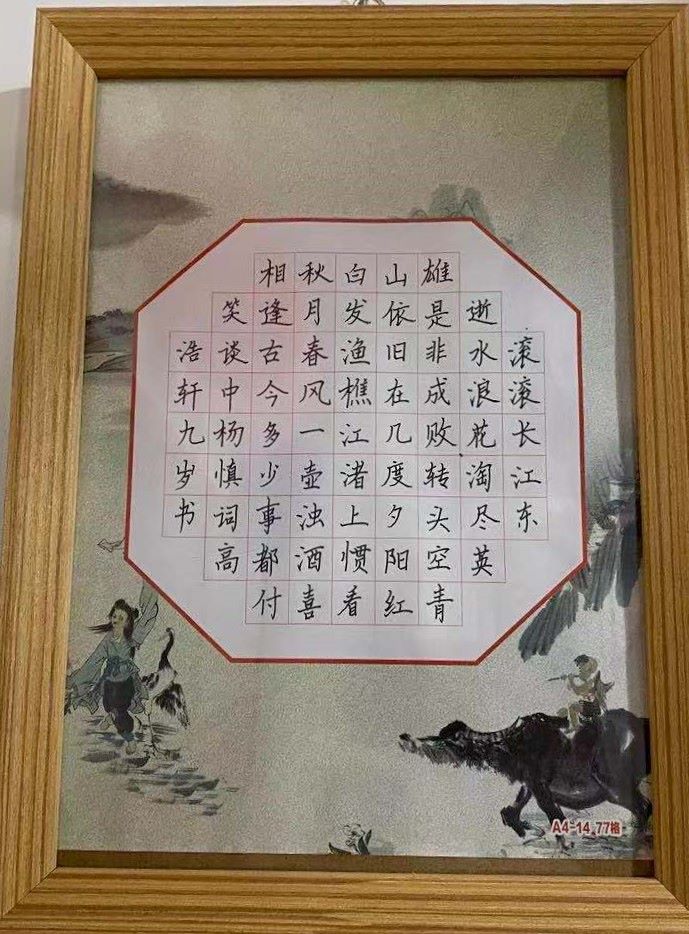 滚滚长江东
逝水浪花淘尽英
雄是非成败转头空青
山依旧在几度夕阳红
白发渔樵江渚上惯看
秋月春风一壶浊酒喜
相逢古今多少事都付
笑谈中杨慎词高
浩轩九岁书
A4-14 77格